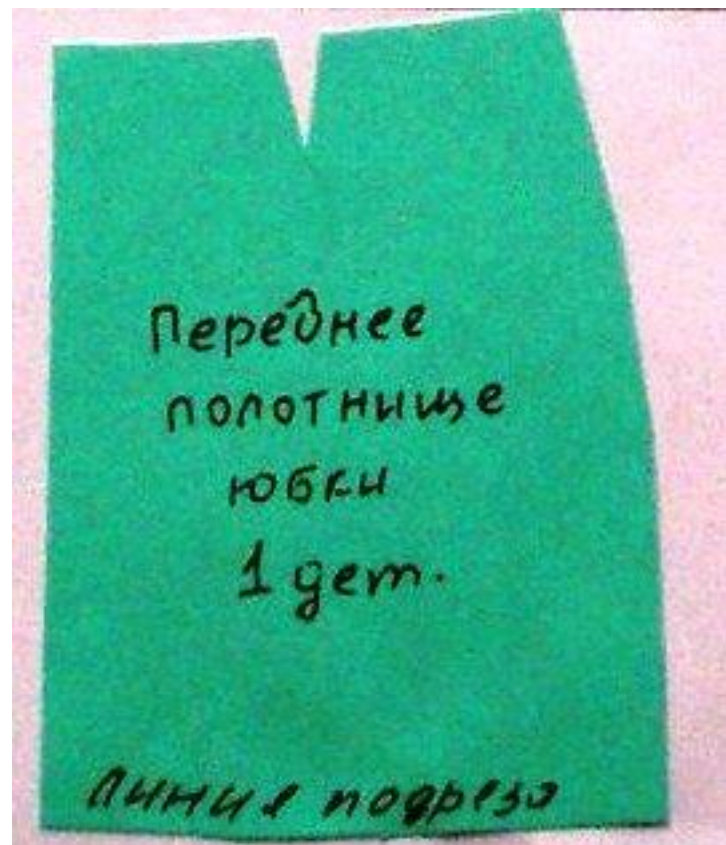 Переднее
полотнище
юбки
1 дет.
линия подреза